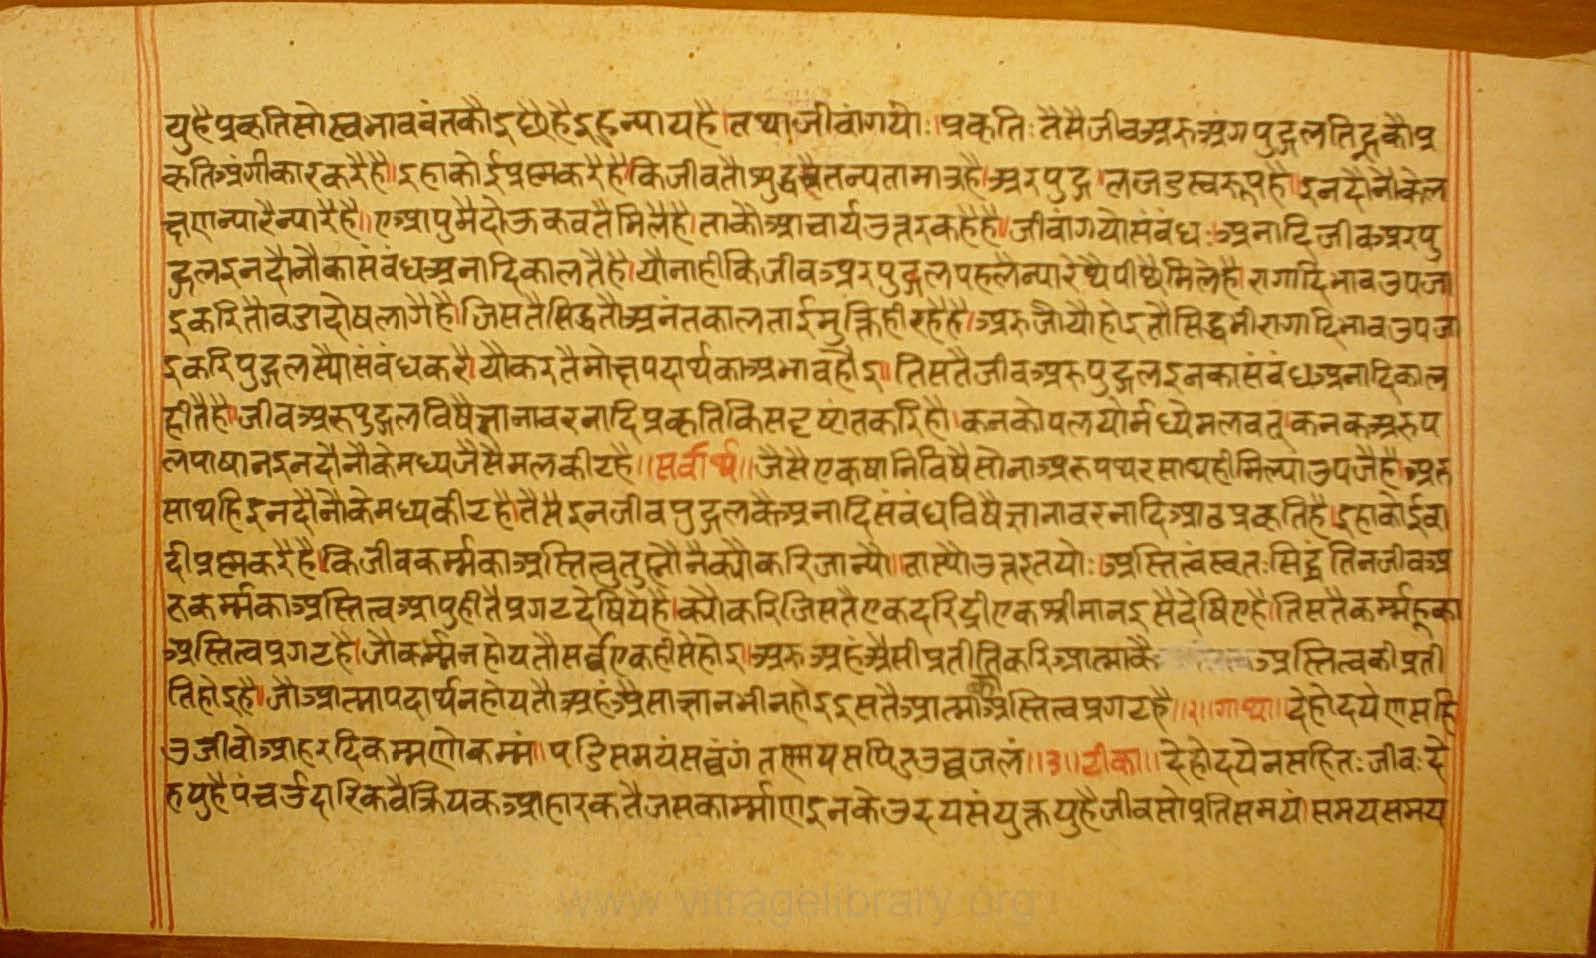 युहै प्रकृति सो स्वभाववंतकौ इछैहै इह न्याय है। तथा जीवांगयोः। प्रकृतिः तैसै जीव अरु अंग पुद्गल तिहकौ प्र
कृति अंगीकार करै है। इहा कोई प्रश्न करै है कि जीव तौ शुद्ध चैतन्यतामात्र है। अर पुद्गल जडस्वरूप है। इन दौनौकेल
क्षण न्यारै न्यारै है॥ ए आपुमै दोऊ कव तै मिलै है। ताकौ आचार्य उत्तर कहै है। जीवांगयो संबंधः अनादि जीव अर पु
द्गल इन दौनौका संबंध अनादिकाल तै है। यौ नाही कि जीव अर पुद्गल पहलै न्यारे थे पीछै मिले है। रागादिभाव उपजा
इकरि तौ वडा दोष लागै है। जिसतै सिद्ध तौ अनंतकालताई मुक्ति ही रहै है। अरु जौ यौ होइ तौ सिद्ध भी रागादिभाव उपजा
इकरि पुद्गलस्यौ संबंध करै। यौ करतै मोक्षपदार्थका अभाव होइ। तिसतै जीव अरु पुद्गल इनका संबंध अनादिकाल
हीतै है। जीव अरु पुद्गल विषै ज्ञानावरनादि प्रकृति किस दृष्टांतकरि है। कनकोपलयोर्मध्ये मलवत्। कनक अरु प
लपाषान इन दौनौके मध्य जैसै मल कीट है॥ सर्वार्थ॥ जैसै एक षानि विषै सोना अरु पथर साथ ही मिल्या उपजै है। अरु
साथहि इन दौनौके मध्य कीट है। तैसै इन जीव पुद्गलकै अनादि संबंध विषै ज्ञानावरनादि आठ प्रकृति है। इहा कोई वा
दी प्रश्न करै है कि जीव कर्म्मका अस्तित्व तुम्हौनै क्यौकरि जान्यौ। तास्यौ उत्तर तयोः अस्तित्वं स्वतःसिद्धं तिन जीव अ
रु कर्म्मका अस्तित्व आपुहीतै प्रगट देषिये है। क्यौकरि जिसतै एक दरिद्री एक श्रीमान इसै देषिए है। तिसतै कर्म्महूका
अस्तित्व प्रगट है। जौ कर्म्म न होय तौ सर्व्व एकहीसे होइ। अरु अहं औसी प्रतीतिकरि आत्माकै अस्तित्वकी प्रती
ति होइ है। जौ आत्मापदार्थ न होय तौ अहं औसा ज्ञान भी न होइ इसतै आत्माका अस्तित्व प्रगट है॥२॥ गाथा॥ देहोदयेण सहि
उ जीवो आहरदि कम्मणोकम्मं। पडिसमयं सव्वंगं तत्तायसपिंडउव्व जलं॥३॥ टीका॥ देहोदयेन सहितः जीवः दे
ह युहै पंच उदारिक वैक्रियक आहारक तैजस कार्म्माण इनके उदय संयुक्त युहै जीव सो प्रतिसमयं समय समय